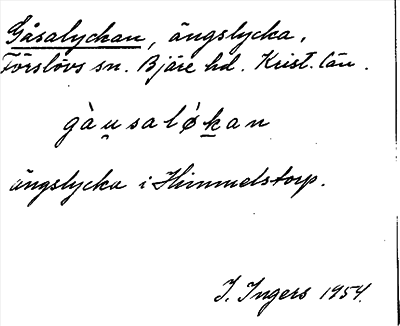 Gåsalyckan, ängslycka,
Förslövs sn. Bjäre hd. Krist. län.
gàu̱salǿḵan
ängslycka i Himmelstorp.
I. Ingers 1954.